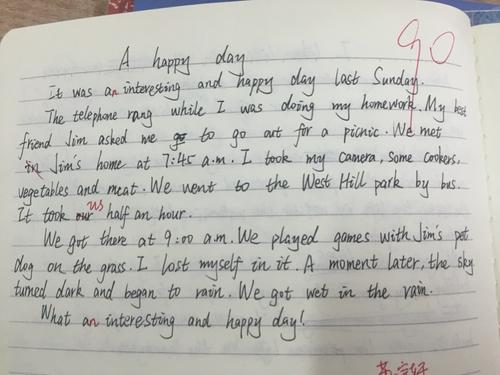 90
A happy day
It was an interesting and happy day last Sunday.
The telephone rang while I was doing my homework. My best
friend Jim asked me to go out for a picnic. We met
in Jim's home at 7:45 a.m. I took my camera, some cookers,
vegetables and meat. We went to the West Hill park by bus.
It took us half an hour.
We got there at 9:00 a.m. We played games with Jim's pet
dog on the grass. I lost myself in it. A moment later, the sky
turned dark and began to rain. We got wet in the rain.
What an interesting and happy day!